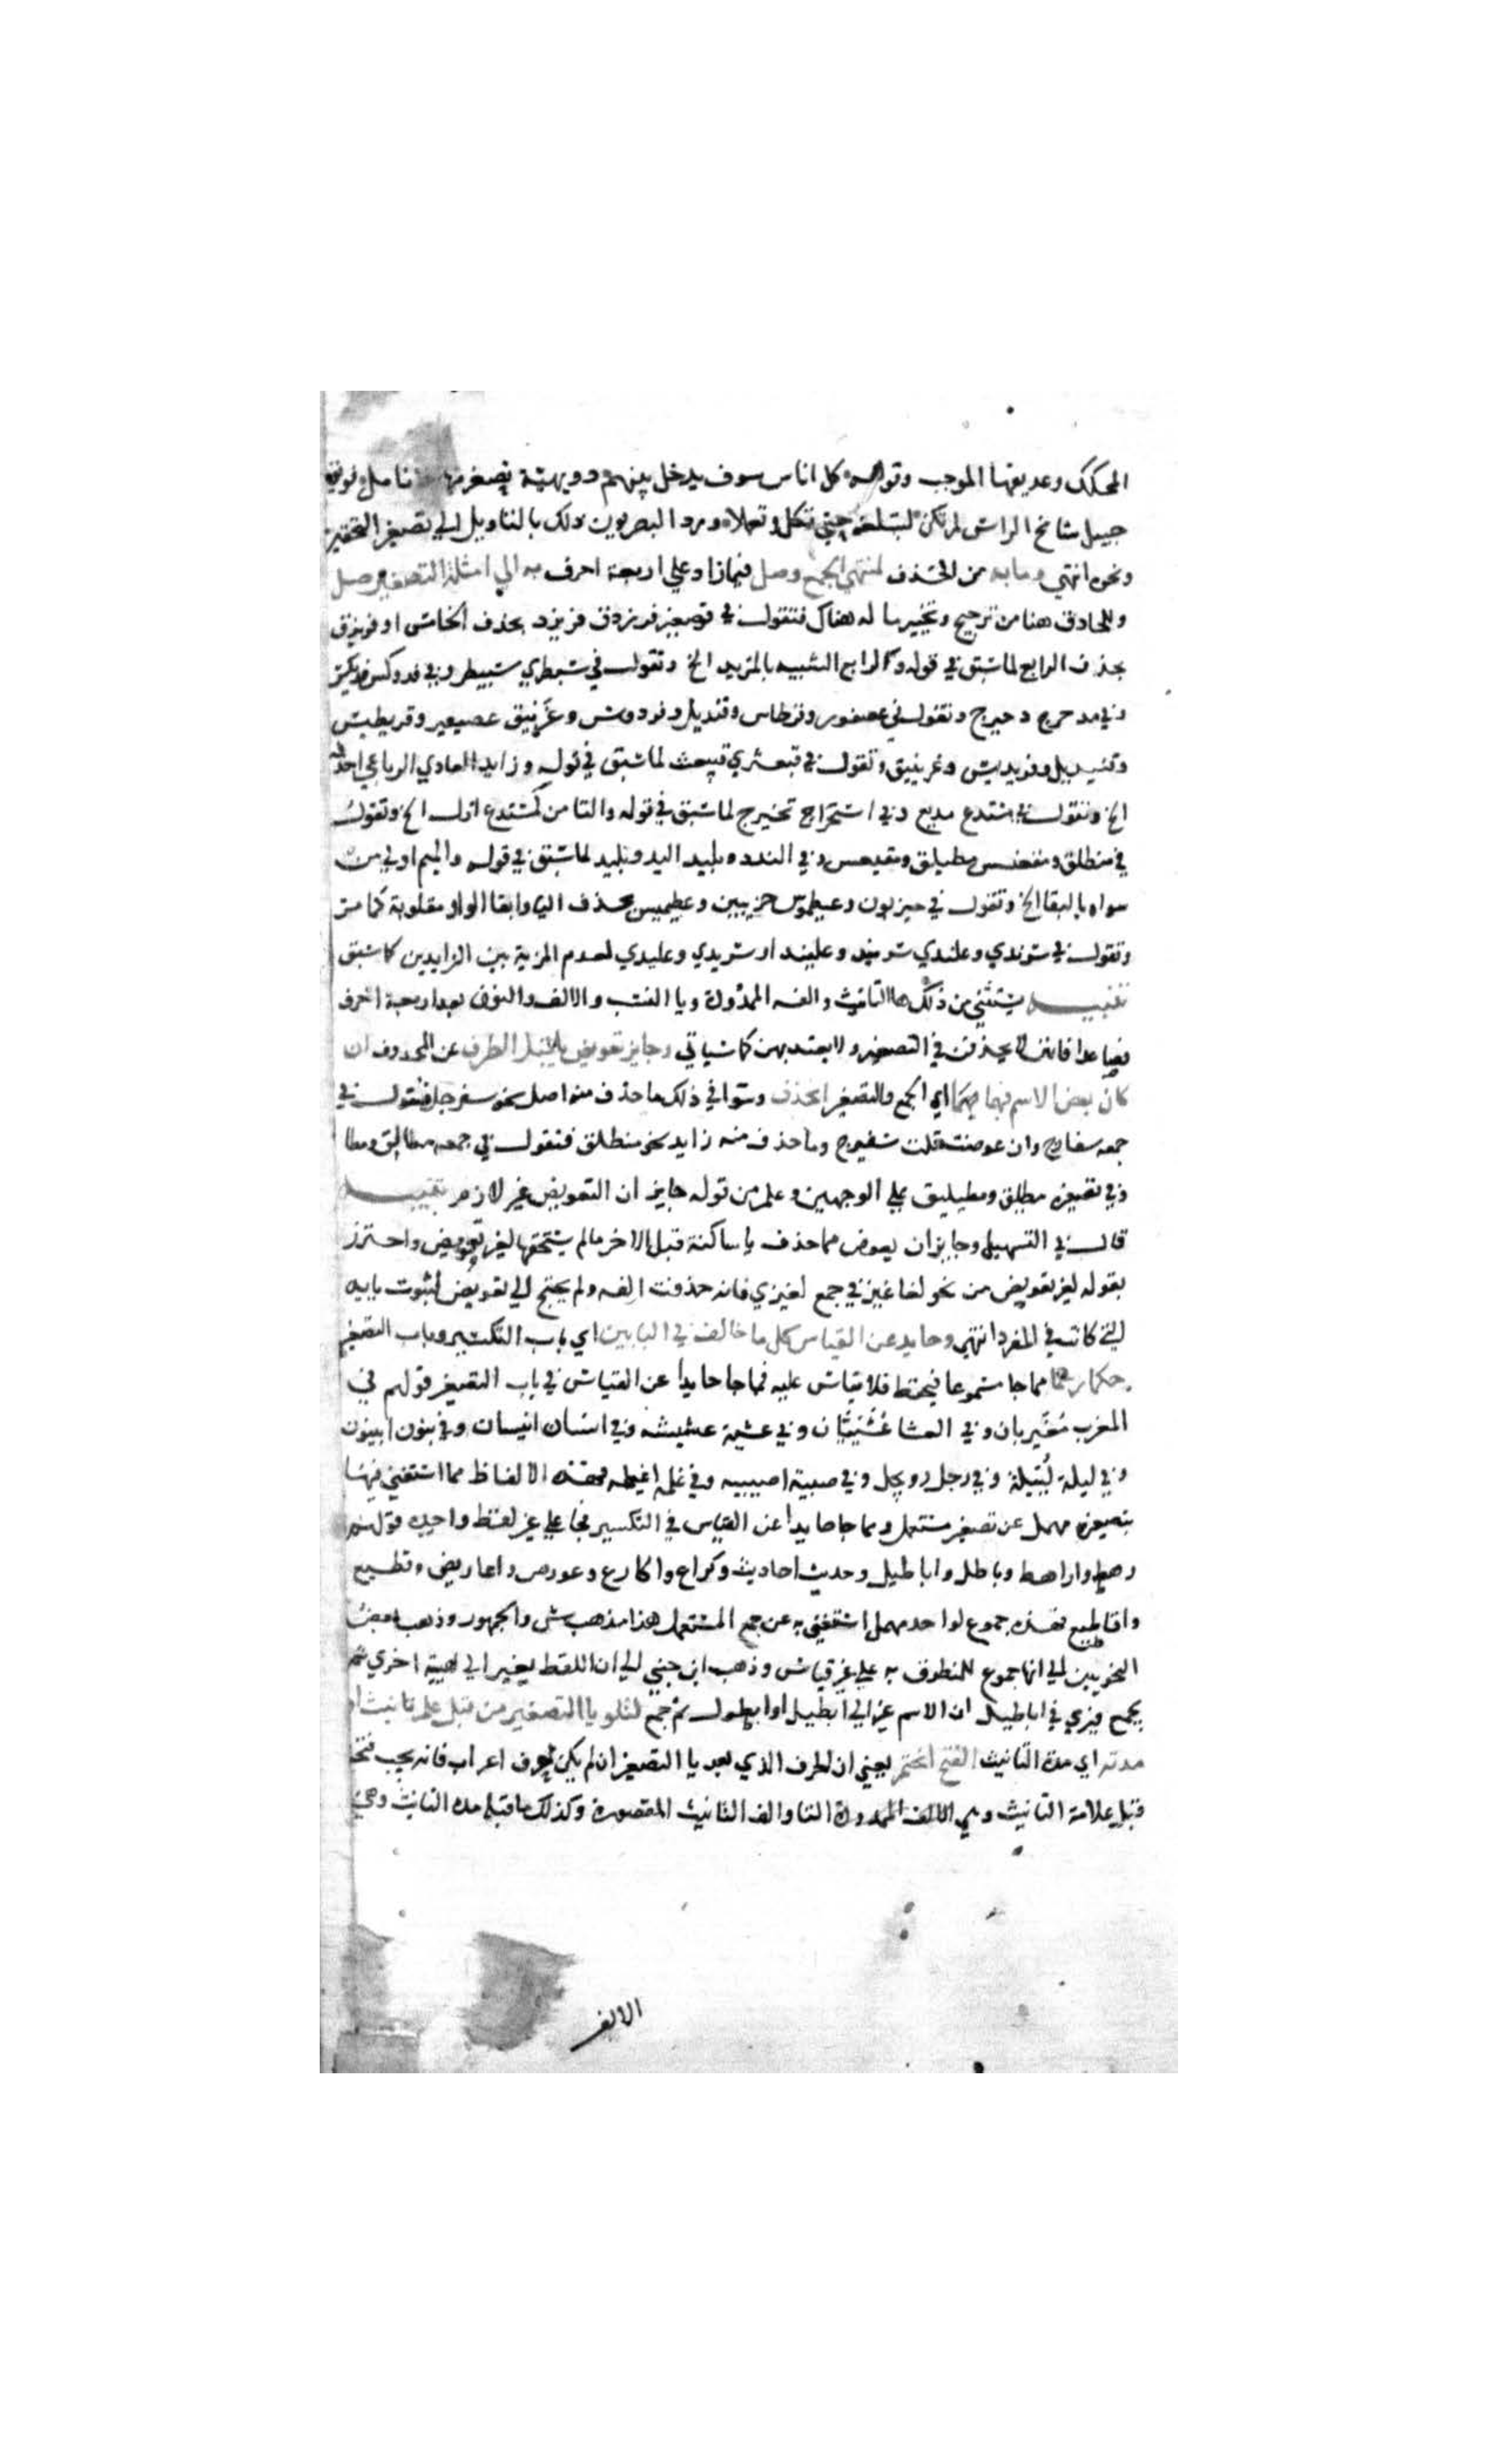 المحكك وعديقها الموجب وقوله كل اناس سوف يدخل بينهم دويهية تصفر منها الانامل فويق
جبيل شامخ الراس لم تكن لتبلغه حتي تكل وتعملا ورد البصريون ذلك بالتاويل الي تصغير التحقير
ونحوه انتهي وما به من الحذف لمنتهي الجمع وصل فيما زاد علي اربعة احرف به الي امثلة التصغير صل
وللحاذف هنا من ترجيح وتخيير ما له هناك فتقول في تصغير فرزدق فريزد بحذف الخامس او فريزق
بحذف الرابع لما سبق في قوله والرابع الشبيه بالمزيد الخ وتقول في سبطري سبيطر وفي فدوكس فديكس
وفي مدحرج دحيرج وتقول في عصفور وقرطاس وقنديل وفردوس وغرنيق عصيفير وقريطيس
وقنيديل وفريديس وغرينيق وتقول في قبعثري قبيعث لما سبق في قوله وزايد العادي الرباعي احذفه
الخ وتقول في مستدع مديع وفي استخراج تخيريج لما سبق في قوله والتا من كمستدع ازل الخ وتقول
في منطلق ومقعنسس مطيلق ومقيعس وفي الندد ويلندد اليد ويليد لما سبق في قوله والميم اولي من
سواه بالبقا الخ وتقول في حيزبون وعيطموس حزيبين وعطيميس بحذف اليا وابقا الواو مقلوبة كما مر
وتقول في سرندي وعلندي سريند وعليند او سريدي وعليدي لعدم المزية بين الزايدين كما سبق
تنبيه يستثني من ذلك ها التانيث والفه الممدودة ويا النسب والالف والنون بعد اربعة احرف
فصاعدا فانهن لا يحذفن في التصغير ولا يعتد بهن كما سياتي وجايز تعويض يا قبل الطرف عن المحذوف ان
كان بعض الاسم فيهما اي الجمع والتصغير انحذف وسوا في ذلك ما حذف منه اصل نحو سفرجل فتقول في
جمعه سفارج وان عوضت قلت سفيريج وما حذف منه زايد نحو منطلق فتقول في جمعه مطالق ومطا
وفي تصغيره مطيلق ومطيليق علي الوجهين وعلم من قوله جايز ان التعويض غير لازم تنبيه
قال في التسهيل وجايز ان يعوض مما حذف يا ساكنة قبل الاخر ما لم يستحقها لغير تعويض واحترز
بقوله لغير تعويض من نحو لغاغيز في جمع لغيزي فانه حذفت الفه ولم يحتج الي تعويض لثبوت يايه
التي كانت في المفرد انتهي وحايد عن القياس كل ما خالف في البابين اي باب التكسير وباب التصغير
حكما رسما مما جا مسموعا فيحفظ فلا يقاس عليه فما جا حايدا عن القياس في باب التصغير قولهم في
المغرب مغيربان وفي العشا عشيشان وفي عشية عشيشة وفي انسان انيسان وفي بنون ابينون
وفي ليلة لييلة وفي رجل رويجل وفي صبية اصيبية وفي غلمة اغيلمة فهذه الالفاظ مما استغني فيها
بتصغير مهمل عن تصغير مستعمل ومما جا حايدا عن القياس في التكسير فجا علي غير لفظ واحده قولهم
رهط واراهط وباطل واباطيل وحديث احاديث وكراع واكارع وعروض واعاريض وقطيع
واقاطيع فهذه جموع لواحد مهمل استغني به عن جمع المستعمل هذا مذهب س والجمهور وذهب بعض
النحويين الي انها جموع للمنطوق به علي غير قياس وذهب ابن جني الي ان اللفظ يغير الي هيية اخري ثم
يجمع فيري في اباطيل ان الاسم غير الي ابطيل او ابطول ثم جمع لتلو يا التصغير من قبل علم تانيث او
مدته اي مدة التانيث الفتح انحتم يعني ان الحرف الذي بعد يا التصغير ان لم يكن حرف اعراب فانه يجب فتحه
قبل علامة التانيث وهي التا والف التانيث المقصورة وكذلك ما قبل مدة التانيث وهي
الالف